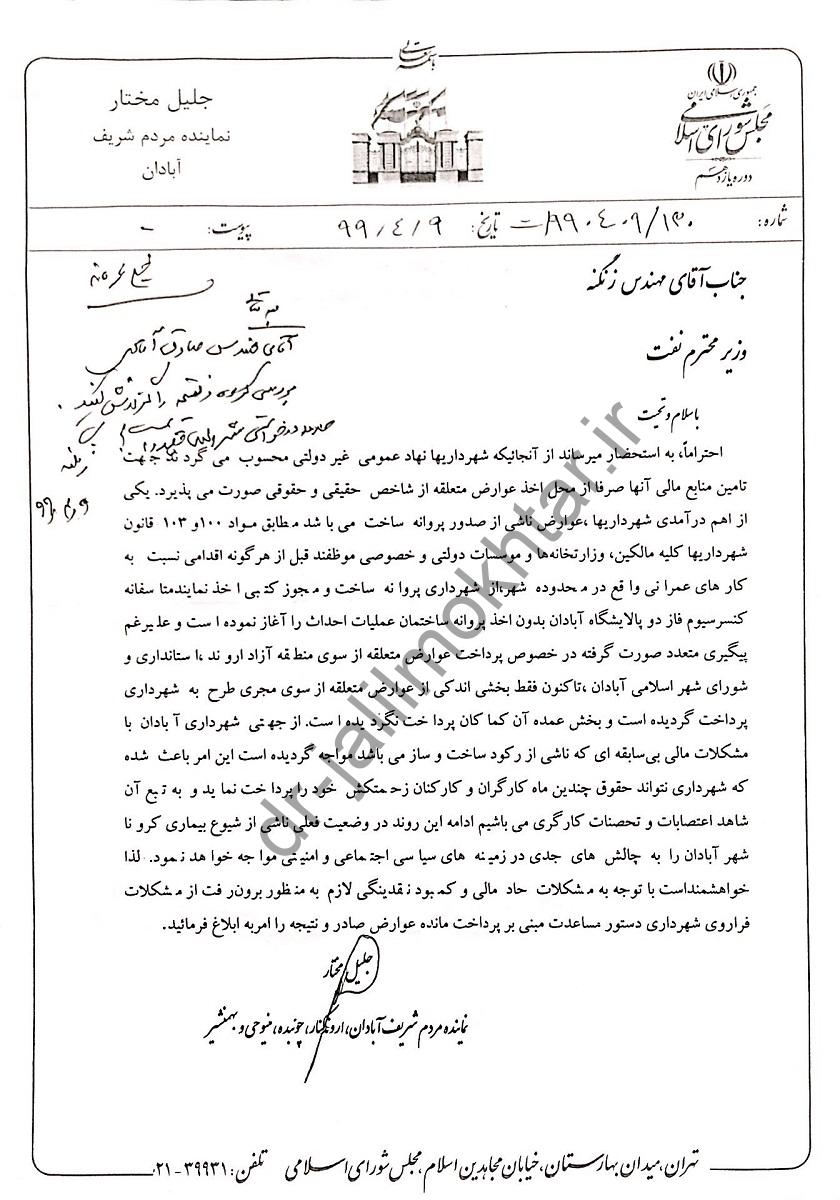 باسمه تعالی
جمهوری اسلامی ایران
مجلس شورای اسلامی
دوره یازدهم
جلیل مختار
نماینده مردم شریف
آبادان
شماره: ۹۹۰۴۰۹/۱۳۰
تاریخ: ۹۹/۴/۹
پیوست: -
جناب آقای مهندس زنگنه
وزیر محترم نفت
باسلام و تحیت
احتراماً، به استحضار میرساند از آنجائیکه شهرداریها نهاد عمومی غیر دولتی محسوب می گردند جهت
تامین منابع مالی آنها صرفا از محل اخذ عوارض متعلقه از شاخص حقیقی و حقوقی صورت می پذیرد. یکی
از اهم درآمدی شهرداریها ،عوارض ناشی از صدور پروانه ساخت می باشد مطابق مواد ۱۰۰و ۱۰۳ قانون
شهرداریها کلیه مالکین، وزارتخانه‌ها و موسسات دولتی و خصوصی موظفند قبل از هرگونه اقدامی نسبت به
کار های عمرانی واقع در محدوده شهر،از شهرداری پروانه ساخت و مجوز کتبی اخذ نمایندمتاسفانه
کنسرسیوم فاز دو پالایشگاه آبادان بدون اخذ پروانه ساختمان عملیات احداث را آغاز نموده است و علیرغم
پیگیری متعدد صورت گرفته در خصوص پرداخت عوارض متعلقه از سوی منطقه آزاد اروند ،استانداری و
شورای شهر اسلامی آبادان ،تاکنون فقط بخشی اندکی از عوارض متعلقه از سوی مجری طرح به شهرداری
پرداخت گردیده است و بخش عمده آن کماکان پرداخت نگردیده است. از جهتی شهرداری آبادان با
مشکلات مالی بی‌سابقه ای که ناشی از رکود ساخت و ساز می باشد مواجه گردیده است این امر باعث شده
که شهرداری نتواند حقوق چندین ماه کارگران و کارکنان زحمتکش خود را پرداخت نماید و به تبع آن
شاهد اعتصابات و تحصنات کارگری می باشیم ادامه این روند در وضعیت فعلی ناشی از شیوع بیماری کرونا
شهر آبادان را به چالش های جدی در زمینه های سیاسی اجتماعی و امنیتی مواجه خواهد نمود. لذا
خواهشمنداست با توجه به مشکلات حاد مالی و کمبود نقدینگی لازم به منظور برون‌رفت از مشکلات
فراروی شهرداری دستور مساعدت مبنی بر پرداخت مانده عوارض صادر و نتیجه را امربه ابلاغ فرمائید.
جلیل مختار
نماینده مردم شریف آبادان، اروندکنار، چوئبده، منیوحی و بهمنشیر
آقای مهندس صادق آبادی
بررسی کرده و نتیجه را گزارش کنید.
زنگنه
dr-jalilmokhtar.ir
تهران، میدان بهارستان، خیابان مجاهدین اسلام، مجلس شورای اسلامی تلفن: ۳۹۹۳۱-۰۲۱